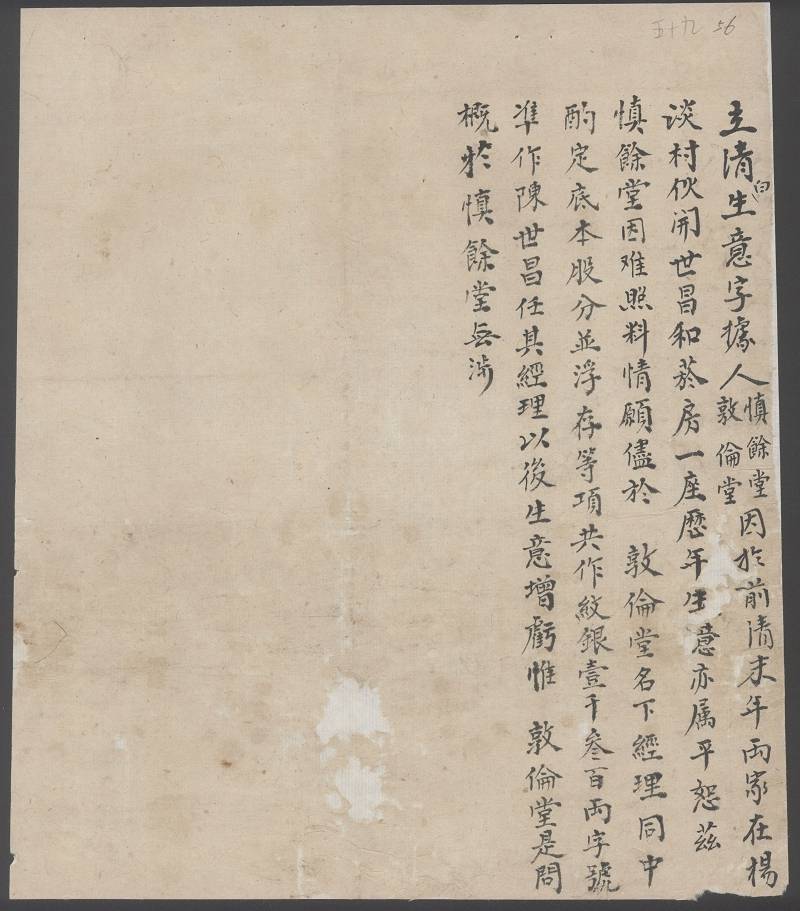 五十九 56
立清白生意字據人慎餘堂敦倫堂因於前清末年兩家在楊
談村伙開世昌和菸房一座歷年生意亦属平恕茲
慎餘堂因难照料情願儘於 敦倫堂名下經理同中
酌定底本股分並浮存等項共作紋銀壹千叁百兩字號
準作陳世昌任其經理以後生意增虧惟 敦倫堂是問
概於慎餘堂無涉